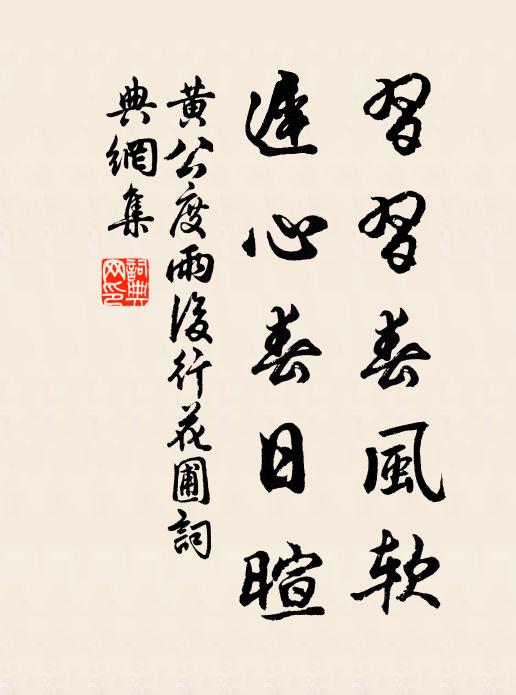 習習春風軟
遲心春日暄
黃公度雨後行花圃詞
典網集
詞典
网印